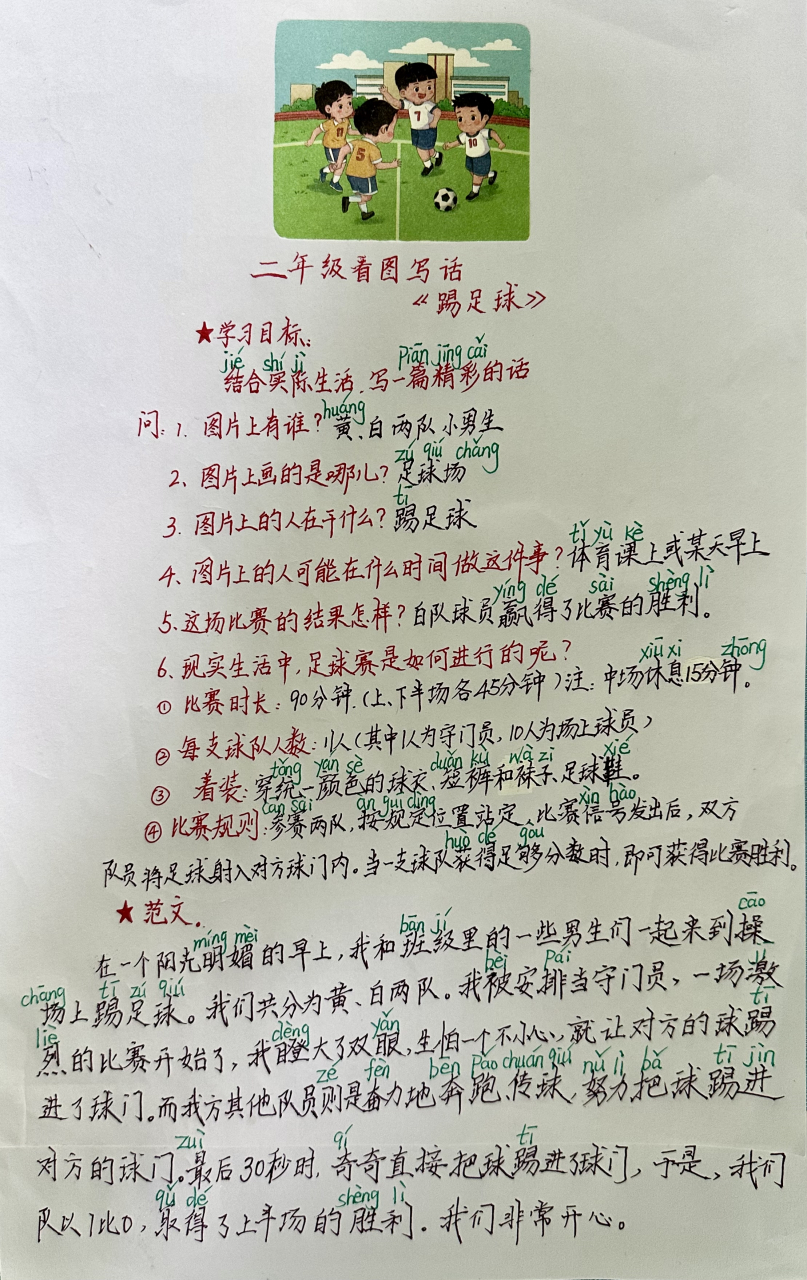 11
5
7
10
二年级看图写话
《踢足球》
★学习目标:
jié shí jì piān jīng cǎi
结合实际生活,写一篇精彩的话
huáng
问:1. 图片上有谁?黄、白两队小男生
zú qiú chǎng
2、图片上画的是哪儿?足球场
tī
3. 图片上的人在干什么?踢足球
tǐ yù kè
4、图片上的人可能在什么时间做这件事?体育课上或某天早上
yíng dé sài shèng lì
5.这场比赛的结果怎样?白队球员赢得了比赛的胜利。
xiū xi zhōng
6、现实生活中,足球赛是如何进行的呢?
① 比赛时长:90分钟.(上、下半场各45分钟)注:中场休息15分钟。
② 每支球队人数:11人(其中1人为守门员,10人为场上球员)
tǒng yán sè duǎn kù wà zi xié
③ 着装:穿统一颜色的球衣、短裤和袜子、足球鞋。
cān sài àn guī dìng xìn hào
④ 比赛规则:参赛两队,按规定位置站定、比赛信号发出后,双方
huò dé gòu
队员将足球射入对方球门内。当一支球队获得足够分数时,即可获得比赛胜利。
★ 范文。
míng mèi bān jí cāo
在一个阳光明媚的早上,我和班级里的一些男生们一起来到操
chǎng tī zú qiú bèi pái jī
场上踢足球。我们共分为黄、白两队。我被安排当守门员,一场激
liè dèng yǎn tī
烈的比赛开始了,我瞪大了双眼,生怕一个不小心,就让对方的球踢
zé fèn bēn pǎo chuán qiú nǔ lì bǎ tī jìn
进了球门。而我方其他队员则是奋力地奔跑、传球,努力把球踢进
zuì qí tī
对方的球门。最后30秒时,奇奇直接把球踢进了球门,于是,我们
qǔ dé shèng lì
队以1比0,取得了上半场的胜利.我们非常开心。